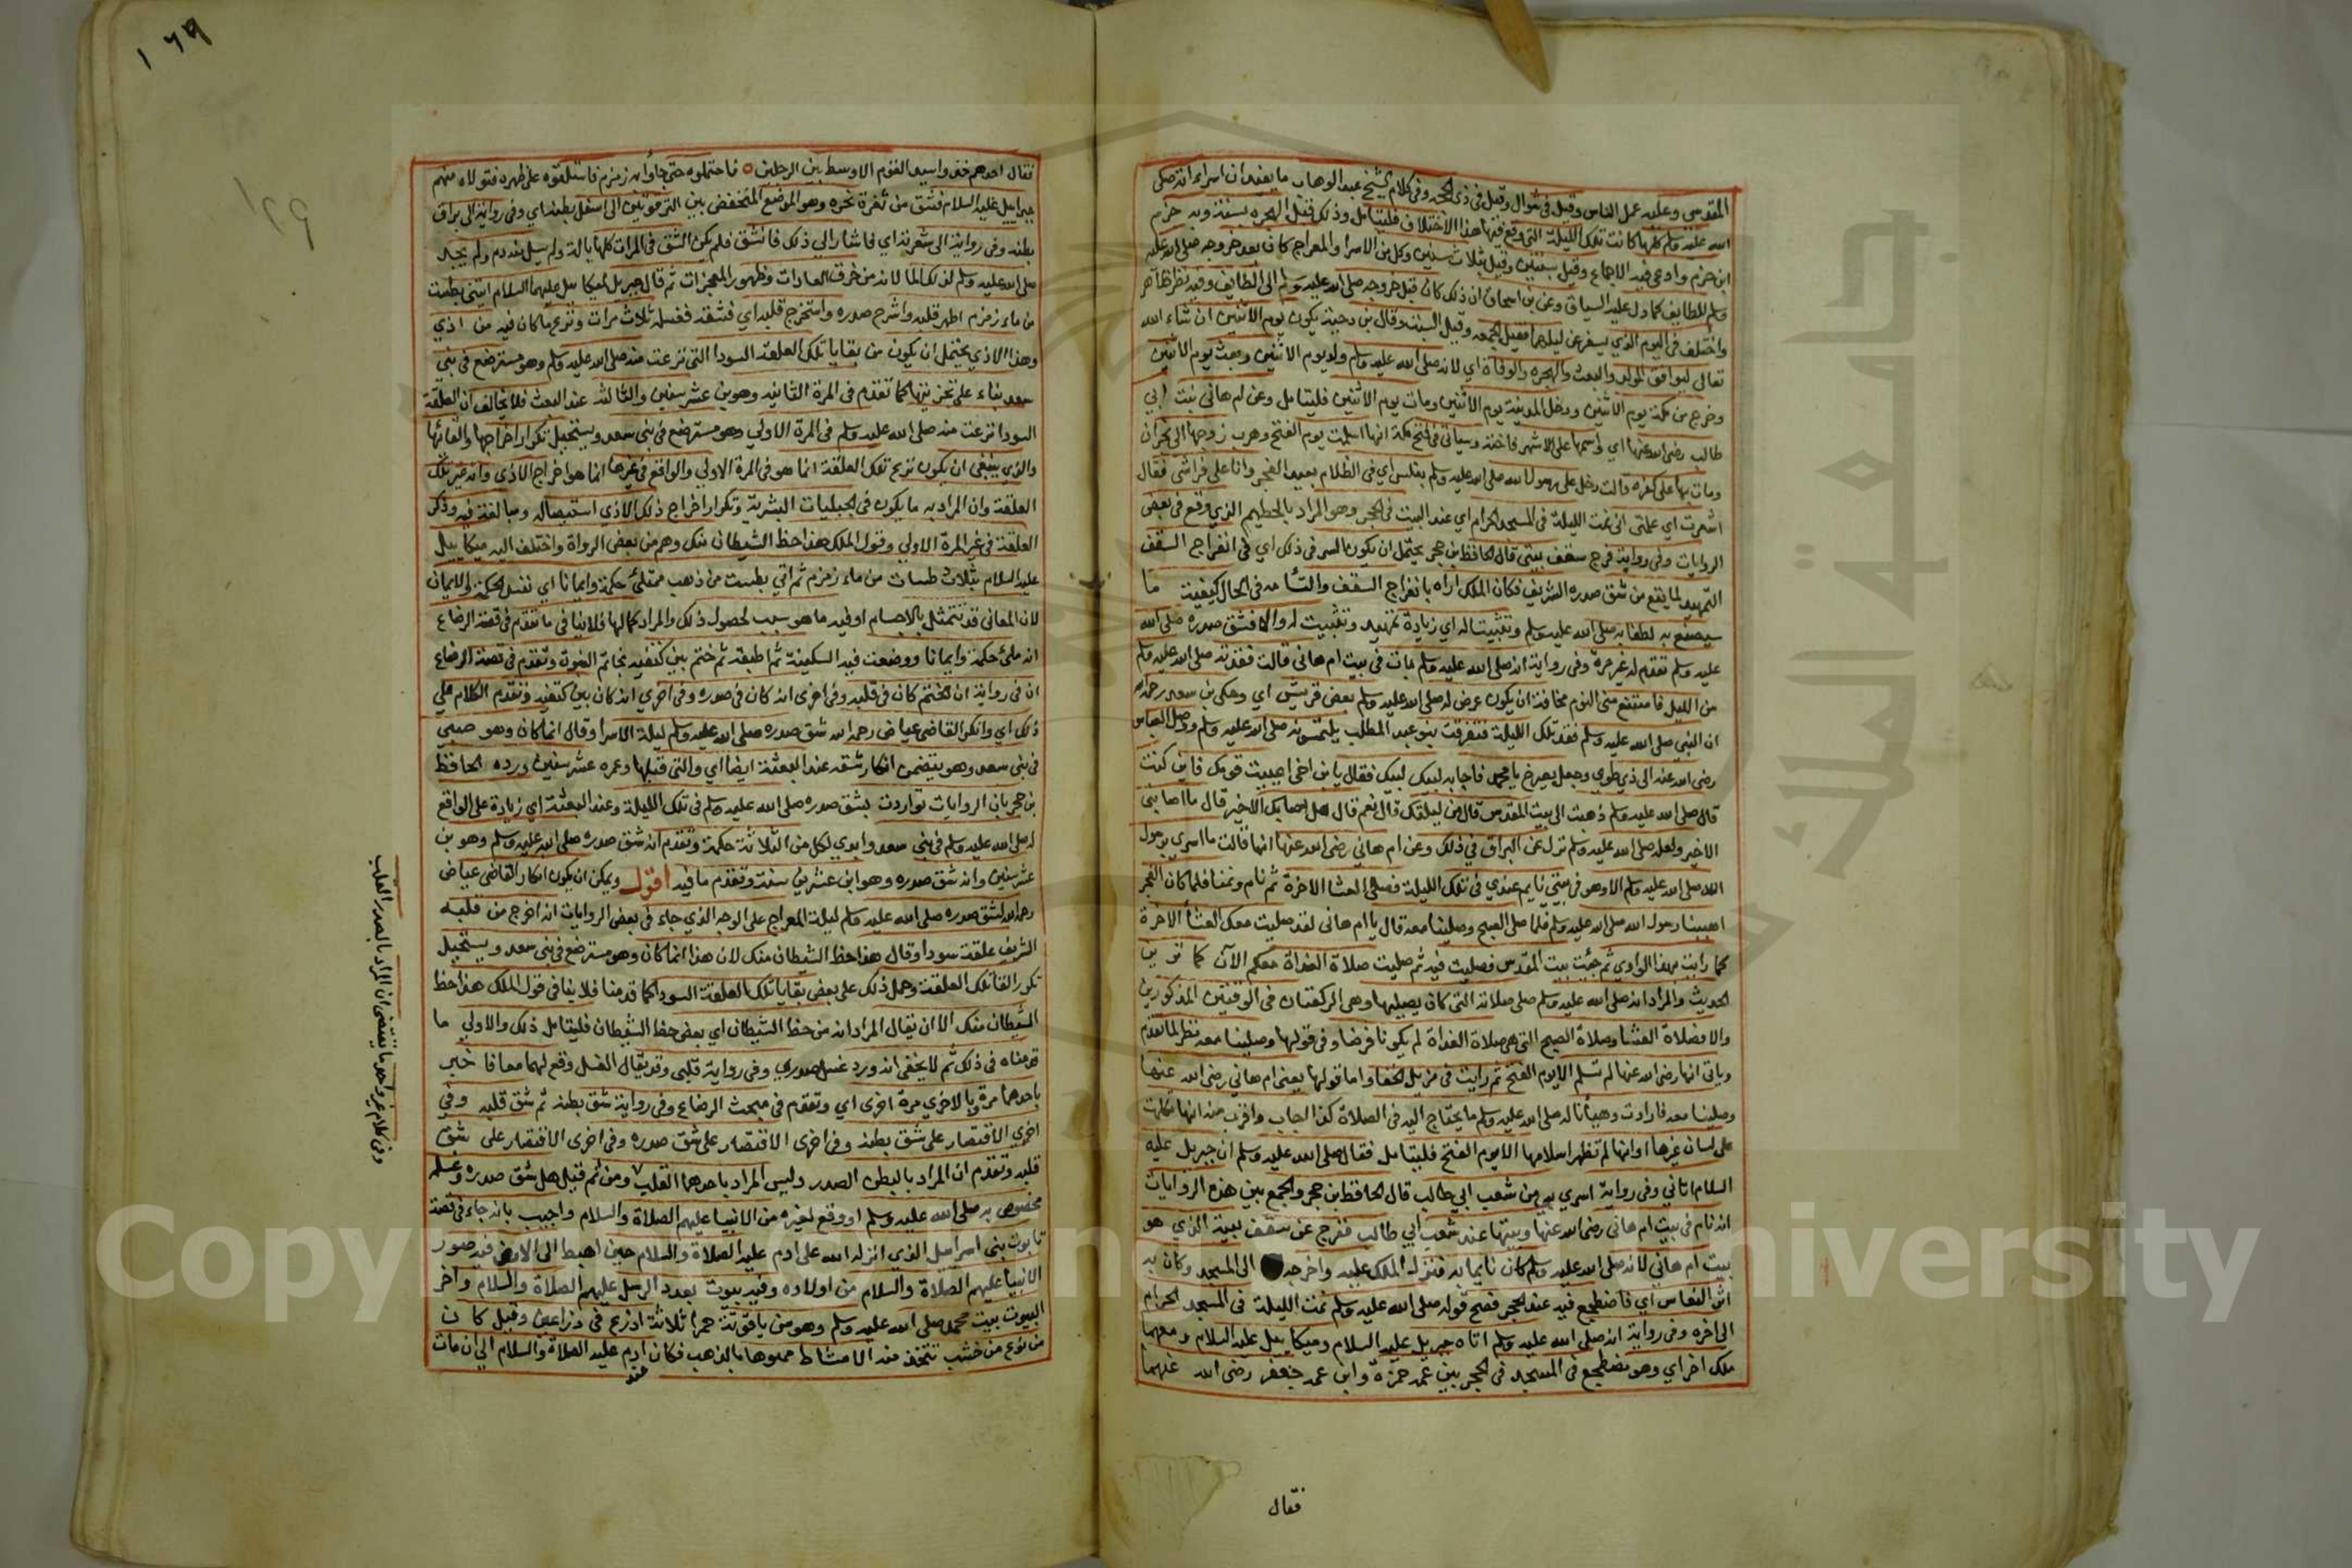 المقدسي وعليه عمل الناس وقيل في شوال وقيل في ذي الحجه وفي كلام الشيخ عبد الوهاب ما يفيد ان اسراءاته صلى
الله عليه وسلم كلها كانت تلك الليلة التي وقع فيها هذا الاختلاف فليتامل وذلك قبل الهجره بسنة وبه جزم
ابن حزم وادعى فيه الاجماع وقيل بسنتين وقيل بثلاث سنين وكل من الاسرا والمعراج كان بعد خروجه صلى الله عليه
وسلم للطايف كما دل عليه السياق وعن بن اسحاق ان ذلك كان قبل خروجه صلى الله عليه وسلم الى الطايف وفيه نظر ظاهر
واختلف في اليوم الذي يسفر عن ليلتها فقيل الجمعه وقيل السبت وقال بن دحية يكون يوم الاثنين ان شاء الله
تعالى ليوافق المولد والبعث والهجره والوفاة اي لانه صلى الله عليه وسلم ولد يوم الاثنين وبعث يوم الاثنين
وخرج من مكة يوم الاثنين ودخل المدينة يوم الاثنين ومات يوم الاثنين فليتامل وعن ام هانى بنت ابي
طالب رضى الله عنها اي واسمها على الاشهر فاختة وسياتي في فتح مكة انها اسلمت يوم الفتح وهرب زوجها الى نجران
ومات بها على كفره قالت دخل على رسول الله صلى الله عليه وسلم بغلس اي في الظلام بعيد الفجر وانا على فراشى فقال
اشعرت اي علمتى انى نمت الليلة في المسجد الحرام اي عند البيت في الحجر وهو المراد بالحطيم الذي وقع في بعض
الروايات وفي رواية فرج سقف بيتي قال الحافظ بن حجر يحتمل ان يكون السر في ذلك اي في انفراج السقف
التمهيد لما يقع من شق صدره الشريف فكان الملك اراه بانفراج السقف والتئامه في الحال كيفية ما
سيصنع به لطفا به صلى الله عليه وسلم وتثبيتا له اي زيادة تمهيد وتثبيت له والا فشق صدره صلى الله
عليه وسلم تقدم له غير مرة وفي رواية انه صلى الله عليه وسلم بات في بيت ام هانى قالت ففقدته صلى الله عليه وسلم
من الليل فامتنع منى النوم مخافة ان يكون عرض له صلى الله عليه وسلم بعض قريش اي وحكى بن سعد رحمه الله
ان النبي صلى الله عليه وسلم فقد تلك الليلة فتفرقت بنو عبد المطلب يلتمسونه صلى الله عليه وسلم ووصل العباس
رضى الله عنه الى ذي طوى وجعل يصرخ يا محمد فاجابه لبيك لبيك فقال يا بن اخي اعييت قومك فاين كنت
قال صلى الله عليه وسلم ذهبت الى بيت المقدس قال من ليلتك قال نعم قال هل اصابك الا خير قال ما اصابني
الا خير ولعله صلى الله عليه وسلم نزل عن البراق في ذلك وعن ام هاني رضى الله عنها انها قالت ما اسري برسول
الله صلى الله عليه وسلم الا وهو في بيتي نايم عندي في تلك الليلة فصلى العشا الاخرة ثم نام ونمنا فلما كان الفجر
اهبنا رسول الله صلى الله عليه وسلم فلما صلى الصبح وصلينا معه قال يا ام هانى لقد صليت معك العشأ الاخرة
كما رايت بهذا الوادي ثم جئت بيت المقدس فصليت فيه ثم صليت صلاة الغداة معكم الآن كما ترين
الحديث والمراد انه صلى الله عليه وسلم صلى صلاته التى كان يصليها وهى الركعتان في الوقتين المذكورين
والا فصلاة العشا وصلاة الصبح التى هى صلاة الغداة لم يكونا فرضا وفي قولها وصلينا معه نظر لما تقدم
وياتى انها رضى الله عنها لم تسلم الا يوم الفتح ثم رايت في مزيل الخفا واما قولها يعنى ام هاني رضى الله عنها
وصلينا معه فارادت وهيأنا له صلى الله عليه وسلم ما يحتاج اليه في الصلاة كذا اجاب واقرب منه انها تكلمت
على لسان غيرها او انها لم تظهر اسلامها الا يوم الفتح فليتامل فقال صلى الله عليه وسلم ان جبريل عليه
السلام اتاني وفي رواية اسري به من شعب ابي طالب قال الحافظ بن حجر والجمع بين هذه الروايات
انه نام في بيت ام هانى رضى الله عنها وبيتها عند شعب ابي طالب ففرج عن سقف بيته الذي هو
بيت ام هاني لانه صلى الله عليه وسلم كان نايما به فنزل الملك عليه واخرجه الى المسجد وكان به
اثر النعاس اي فاضطجع فيه عند الحجر فصح قوله صلى الله عليه وسلم نمت الليلة في المسجد الحرام
الى اخره وفي رواية انه صلى الله عليه وسلم اتاه جبريل عليه السلام وميكاييل عليه السلام ومعهما
ملك اخر اي وهو مضطجع في المسجد في الحجر بين عمه حمزة وابن عمه جعفر رضى الله عنهما
فقال
١٦٩
فقال احدهم خذوا سيد القوم الاوسط بين الرجلين فاحتملوه حتى جاؤا به زمزم فاستلقوه على ظهره فتولاه منهم
جبراييل عليه السلام فشق من ثغرة نحره وهو الموضع المنخفض بين الترقوتين الى اسفل بطنه اي وفي رواية الى مراق
بطنه وفي رواية الى شعرته اي فاشار الى ذلك فانشق فلم يكن الشق في المرات كلها بالة ولم يسل منه دم ولم يجد
صلى الله عليه وسلم لذلك الما لانه من خرق العادات وظهور المعجزات ثم قال جبريل لميكاييل عليهما السلام ايتنى بطست
من ماء زمزم اطهر قلبه واشرح صدره واستخرج قلبه اي فشقه فغسله ثلاث مرات ونزع ما كان فيه من اذي
وهذا الاذي يحتمل ان يكون من بقايا تلك العلقة السودا التى نزعت منه صلى الله عليه وسلم وهو مسترضع في بني
سعد بناء على تجزيتها كما تقدم في المرة الثانية وهو بن عشر سنين والثالثة عند البعث فلا يخالف ان العلقة
السودا نزعت منه صلى الله عليه وسلم في المرة الاولى وهو مسترضع في بنى سعد ويستحيل تكرار اخراجها والقائها
والذي ينبغى ان يكون نزع تلك العلقة انما هو في المرة الاولى والواقع في غيرها انما هو اخراج الاذى وانه غير تلك
العلقة وان المراد به ما يكون في الجبليات البشرية وتكرار اخراج ذلك الاذي استيصاله ومبالغة فيه وذكر
العلقة في غير المرة الاولي وقول الملك هذا حظ الشيطان منك وهم من بعض الرواة واختلف اليه ميكاييل
عليه السلام بثلاث طسات من ماء زمزم ثم اتي بطست من ذهب ممتلئ حكمة وايمانا اي نفس الحكمة والايمان
لان المعانى قد تتمثل بالاجسام او فيه ما هو سبب لحصول ذلك والمراد كمالها فلا ينافى ما تقدم في قصة الرضاع
انه ملئ حكمة وايمانا ووضعت فيه السكينة ثم اطبقه ثم ختم بين كتفيه بخاتم النبوة وتقدم في قصة الرضاع
ان في رواية ان الختم كان في قلبه وفي اخرى انه كان في صدره وفي اخري انه كان بين كتفيه وتقدم الكلام على
ذلك اي وانكر القاضى عياض رحمه الله شق صدره صلى الله عليه وسلم ليلة الاسرا وقال انما كان وهو صبى
في بنى سعد وهو يتضمن انكار شقه عند البعثة ايضا اي والتى قبلها وعمره عشر سنين ورده الحافظ
بن حجر بان الروايات تواردت بشق صدره صلى الله عليه وسلم في تلك الليلة وعند البعثة اي زيادة على الواقع
له صلى الله عليه وسلم في بنى سعد وابدي لكل من الثلاثة حكمة وتقدم انه شق صدره صلى الله عليه وسلم وهو بن
عشر سنين وانه شق صدره وهو ابن عشرين سنة وتقدم ما فيه اقول ويمكن ان يكون انكار القاضى عياض
رحمه الله لشق صدره صلى الله عليه وسلم ليلة المعراج على الوجه الذي جاء في بعض الروايات انه اخرج من قلبه
الشريف علقة سودا وقال هذا حظ الشيطان منك لان هذا انما كان وهو مسترضع في بنى سعد ويستحيل
تكرر القا تلك العلقة وحمل ذلك على بعض بقايا تلك العلقة السودا كما قدمنا فلا ينافى قول الملك هذا حظ
الشيطان منك الا ان يقال المراد انه من حظ الشيطان اي بعض حظ الشيطان فليتامل ذلك والاولي ما
قدمناه في ذلك ثم لا يخفى انه ورد غسل صدري وفي رواية قلبى وقد يقال الغسل وقع لهما معا فاخبر
باحدهما مرة وبالاخري مرة اخرى اي وتقدم في مبحث الرضاع وفي رواية شق بطنه ثم شق قلبه وفي
اخري الاقتصار على شق بطنه وفي اخرى الاقتصار على شق صدره وفي اخرى الاقتصار على شق
قلبه وتقدم ان المراد بالبطن الصدر وليس المراد باحدهما القلب ومن ثم قيل هل شق صدره وغسله
مخصوص به صلى الله عليه وسلم او وقع لغيره من الانبيا عليهم الصلاة والسلام واجيب بانه جاء في قصة
تابوت بنى اسراييل الذي انزله الله على ادم عليه الصلاة والسلام حين اهبط الى الارض فيه صور
الانبيا عليهم الصلاة والسلام من اولاده وفيه بيوت بعدد الرسل عليهم الصلاة والسلام واخر
البيوت بيت محمد صلى الله عليه وسلم وهو من ياقوتة حمرا ثلاثة اذرع في ذراعين وقيل كان
من نوع من خشب تتخذ منه الامشاط مموها بالذهب فكان ادم عليه الصلاة والسلام الى ان مات
عند
وفي كلام غير واحد ما يقتضى ان المراد بالصدر القلب